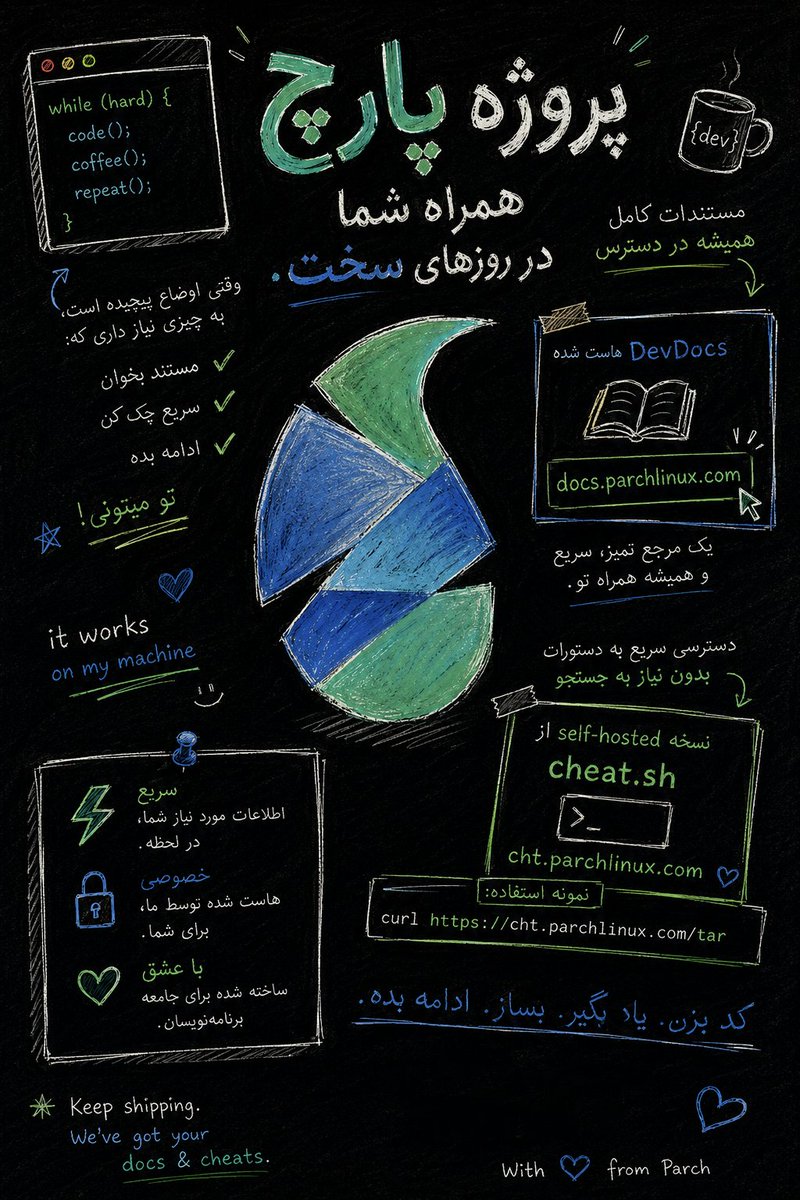 پروژه پارچ
همراه شما
در روزهای سخت.
while (hard) {
code();
coffee();
repeat();
}
{dev}
مستندات کامل
همیشه در دسترس
وقتی اوضاع پیچیده است،
به چیزی نیاز داری که:
مستند بخوان
سریع چک کن
ادامه بده
تو میتونی!
DevDocs هاست شده
docs.parchlinux.com
یک مرجع تمیز، سریع
و همیشه همراه تو.
it works
on my machine
دسترسی سریع به دستورات
بدون نیاز به جستجو
نسخه self-hosted از
cheat.sh
>_
cht.parchlinux.com
نمونه استفاده:
curl https://cht.parchlinux.com/tar
سریع
اطلاعات مورد نیاز شما،
در لحظه.
خصوصی
هاست شده توسط ما،
برای شما.
با عشق
ساخته شده برای جامعه
برنامه‌نویسان.
کد بزن. یاد بگیر. بساز. ادامه بده.
Keep shipping.
We've got your
docs & cheats.
With from Parch